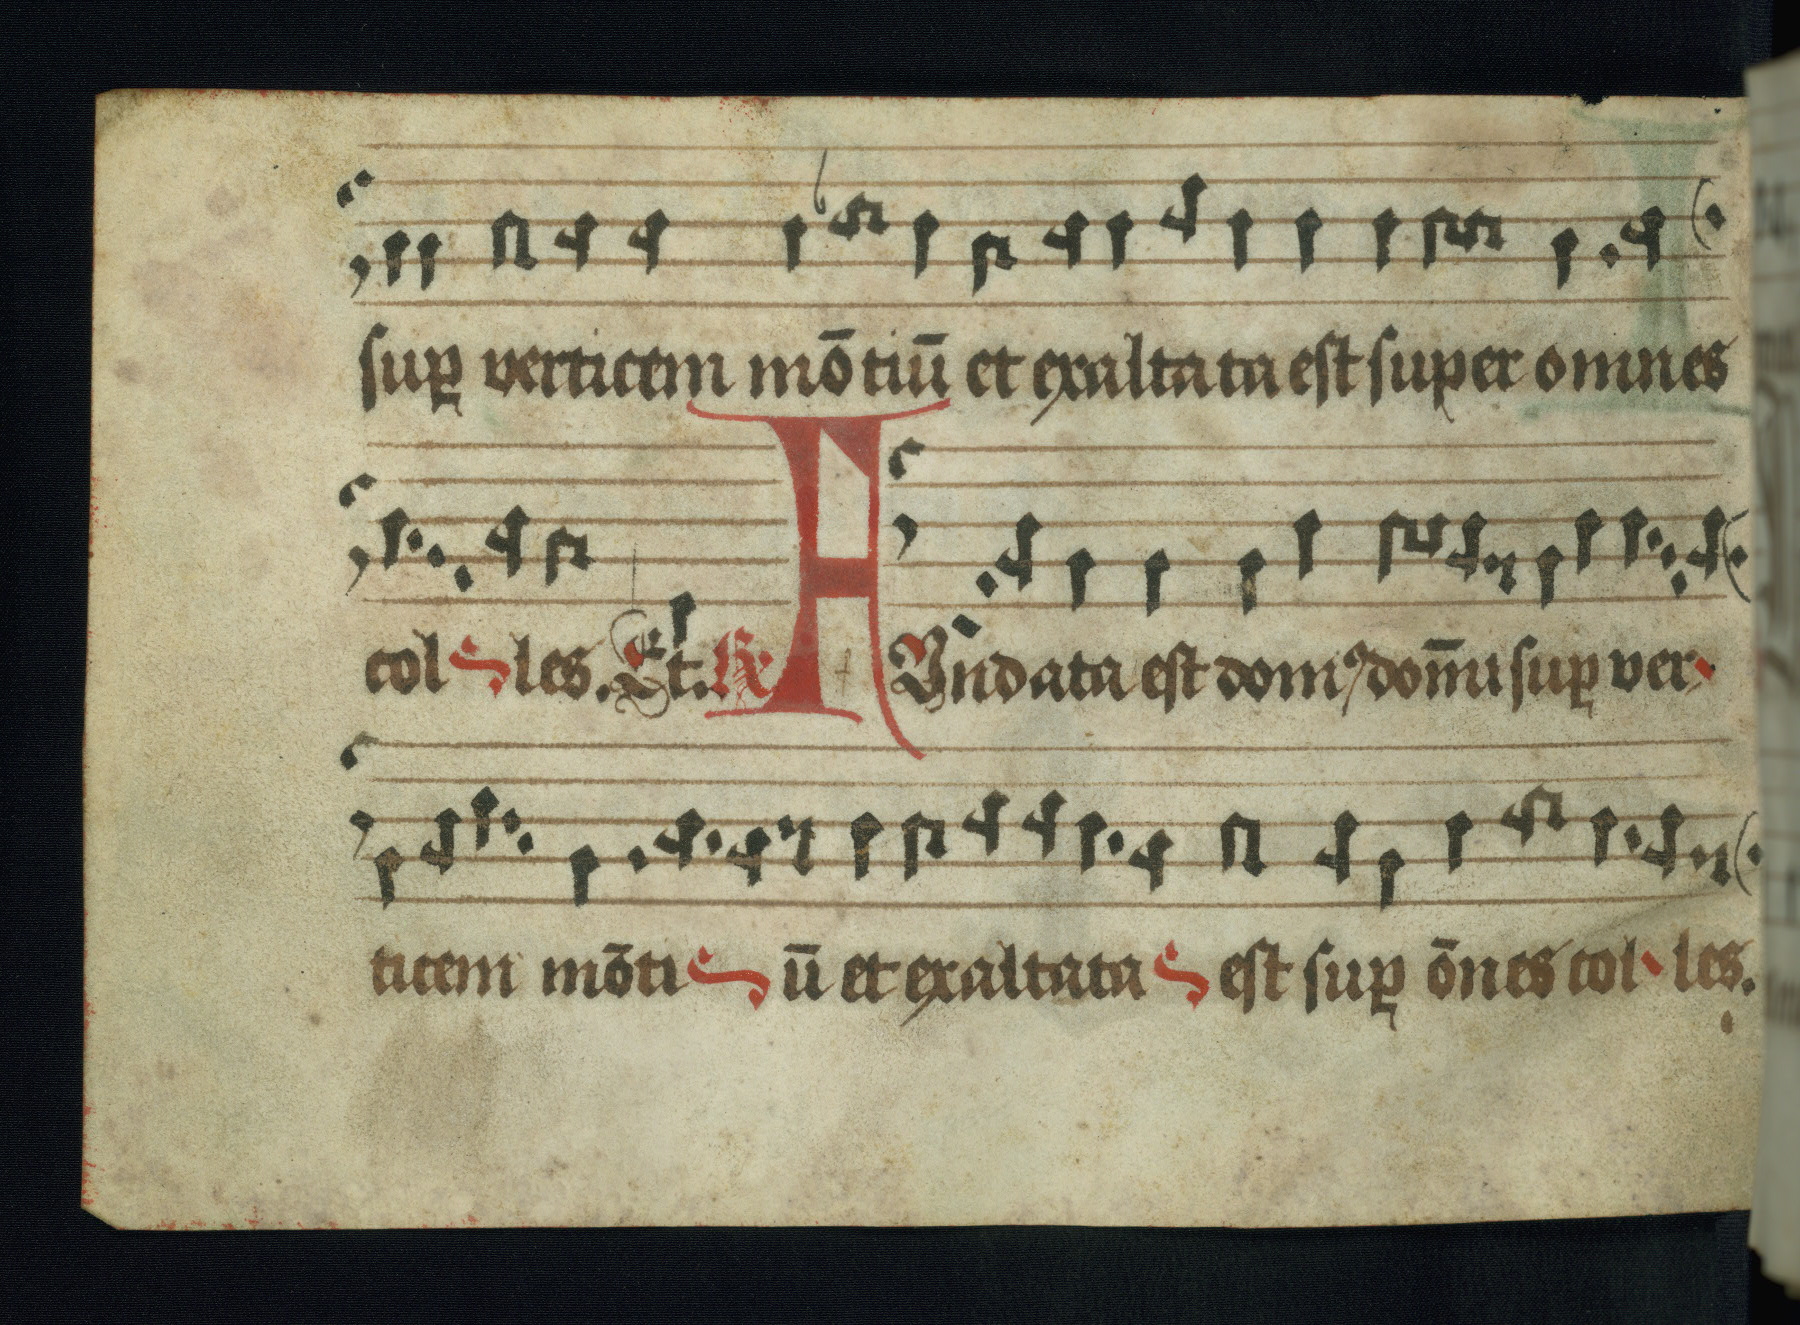 sup̱ verticem mōtiū et exaltata est super omnes
col les. Et. R̸ FVndata est domꝰ dom̄i sup̱ ver
ticem mōti ū et exaltata est sup̱ ōnes col les.